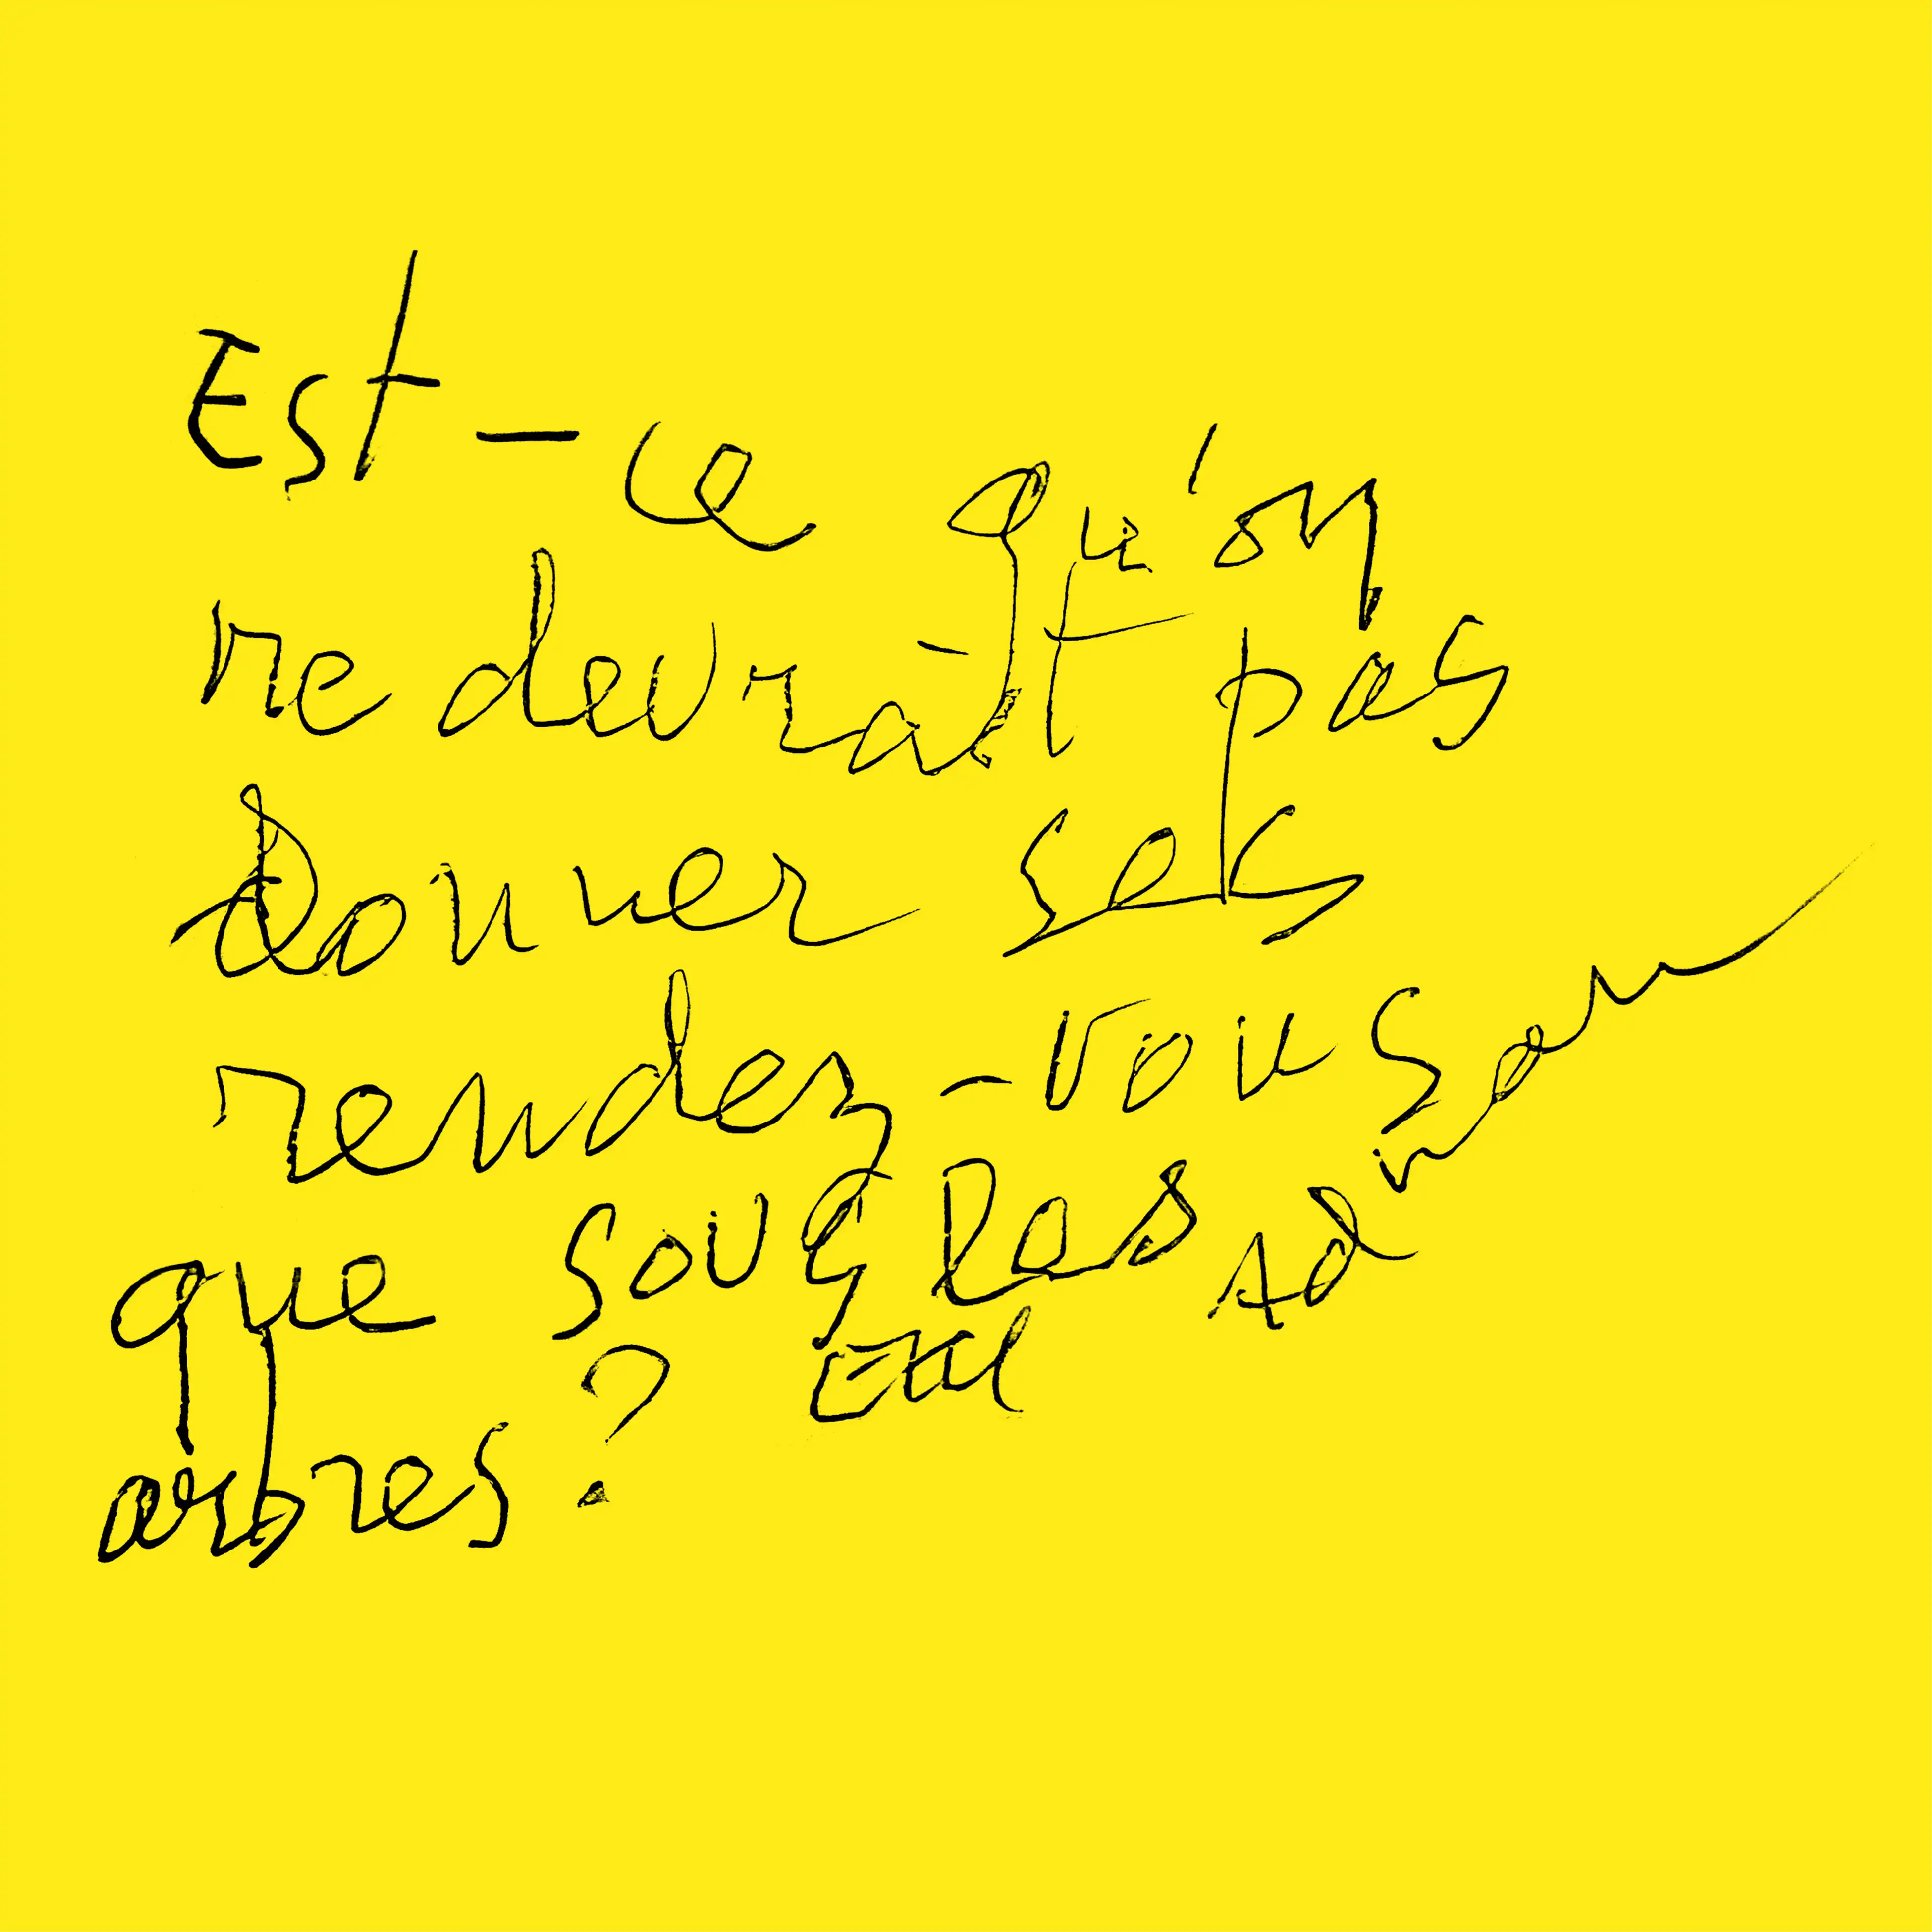 Est-ce qu'on
ne devrait pas
Donner ses
rendez-vous
que sous les
arbres ?